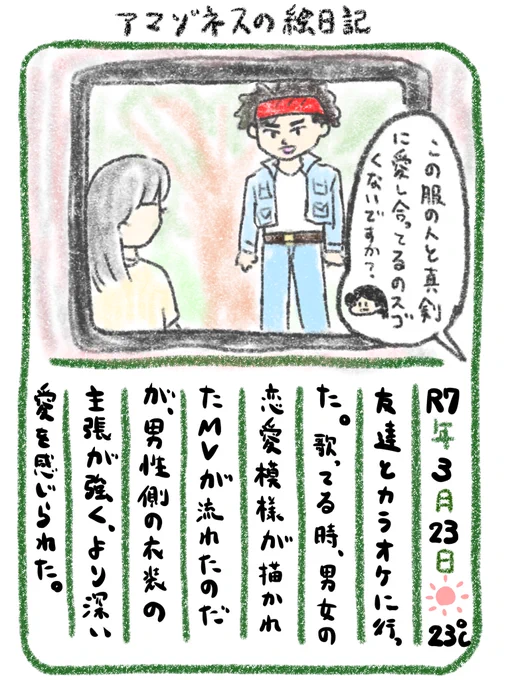 アマゾネスの絵日記
この服の人と真剣
に愛し合ってるのスゴ
くないですか?
R7年3月23日 23℃
友達とカラオケに行っ
た。歌ってる時、男女の
恋愛模様が描かれ
たMVが流れたのだ
が、男性側の衣装の
主張が強く、より深い
愛を感じられた。